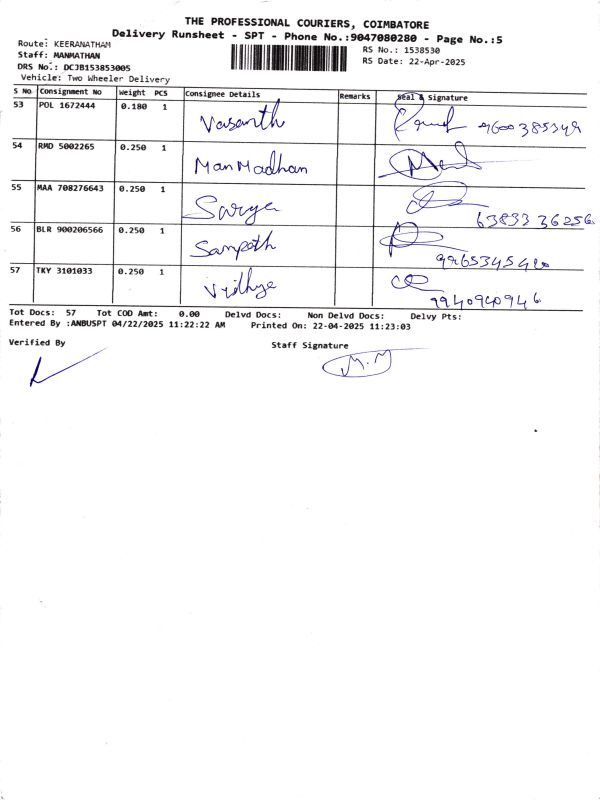 THE PROFESSIONAL COURIERS, COIMBATORE
Delivery Runsheet - SPT - Phone No.:9047080280 - Page No.:5
Route: KEERANATHAM
RS No.: 1538530
Staff: MANMATHAN
RS Date: 22-Apr-2025
DRS No.: DCJB153853005
Vehicle: Two Wheeler Delivery
S No Consignment No Weight PCS Consignee Details Remarks Seal & Signature
53 POL 1672444 0.180 1 Vasanth 9600385349
54 RMD 5002265 0.250 1 ManMadhan
55 MAA 708276643 0.250 1 Surya 6383336256
56 BLR 900206566 0.250 1 Sampath
57 TKY 3101033 0.250 1 Vidhya 9940940946
Tot Docs: 57 Tot COD Amt: 0.00 Delvd Docs: Non Delvd Docs: Delvy Pts:
Entered By :ANBUSPT 04/22/2025 11:22:22 AM Printed On: 22-04-2025 11:23:03
Verified By Staff Signature
M.M